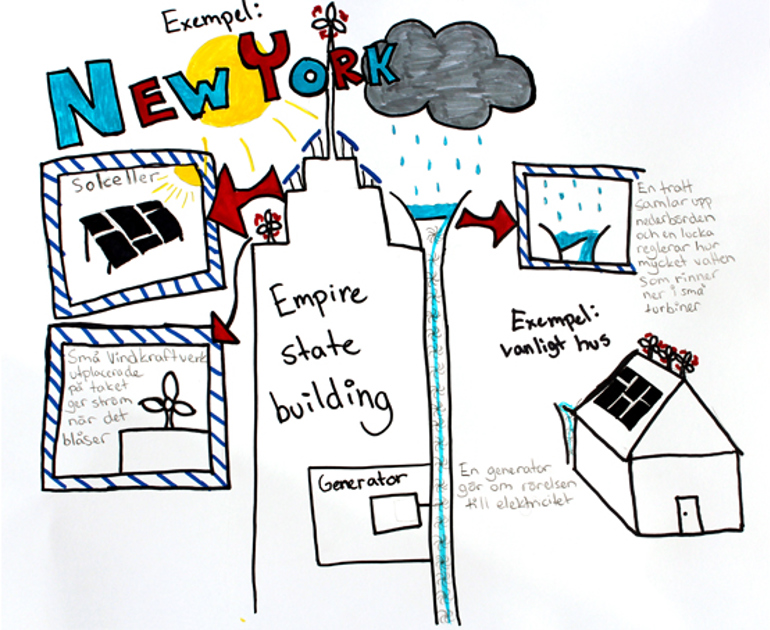 Exempel:
NEW YORK
Solceller
En tratt
samlar upp
nederbörden
och en lucka
reglerar hur
mycket vatten
som rinner
ner i små
turbiner
Små Vindkraftverk
utplacerade
på taket
ger ström
när det
blåser
Empire
state
building
Exempel:
vanligt hus
Generator
En generator
gör om rörelsen
till elektricitet